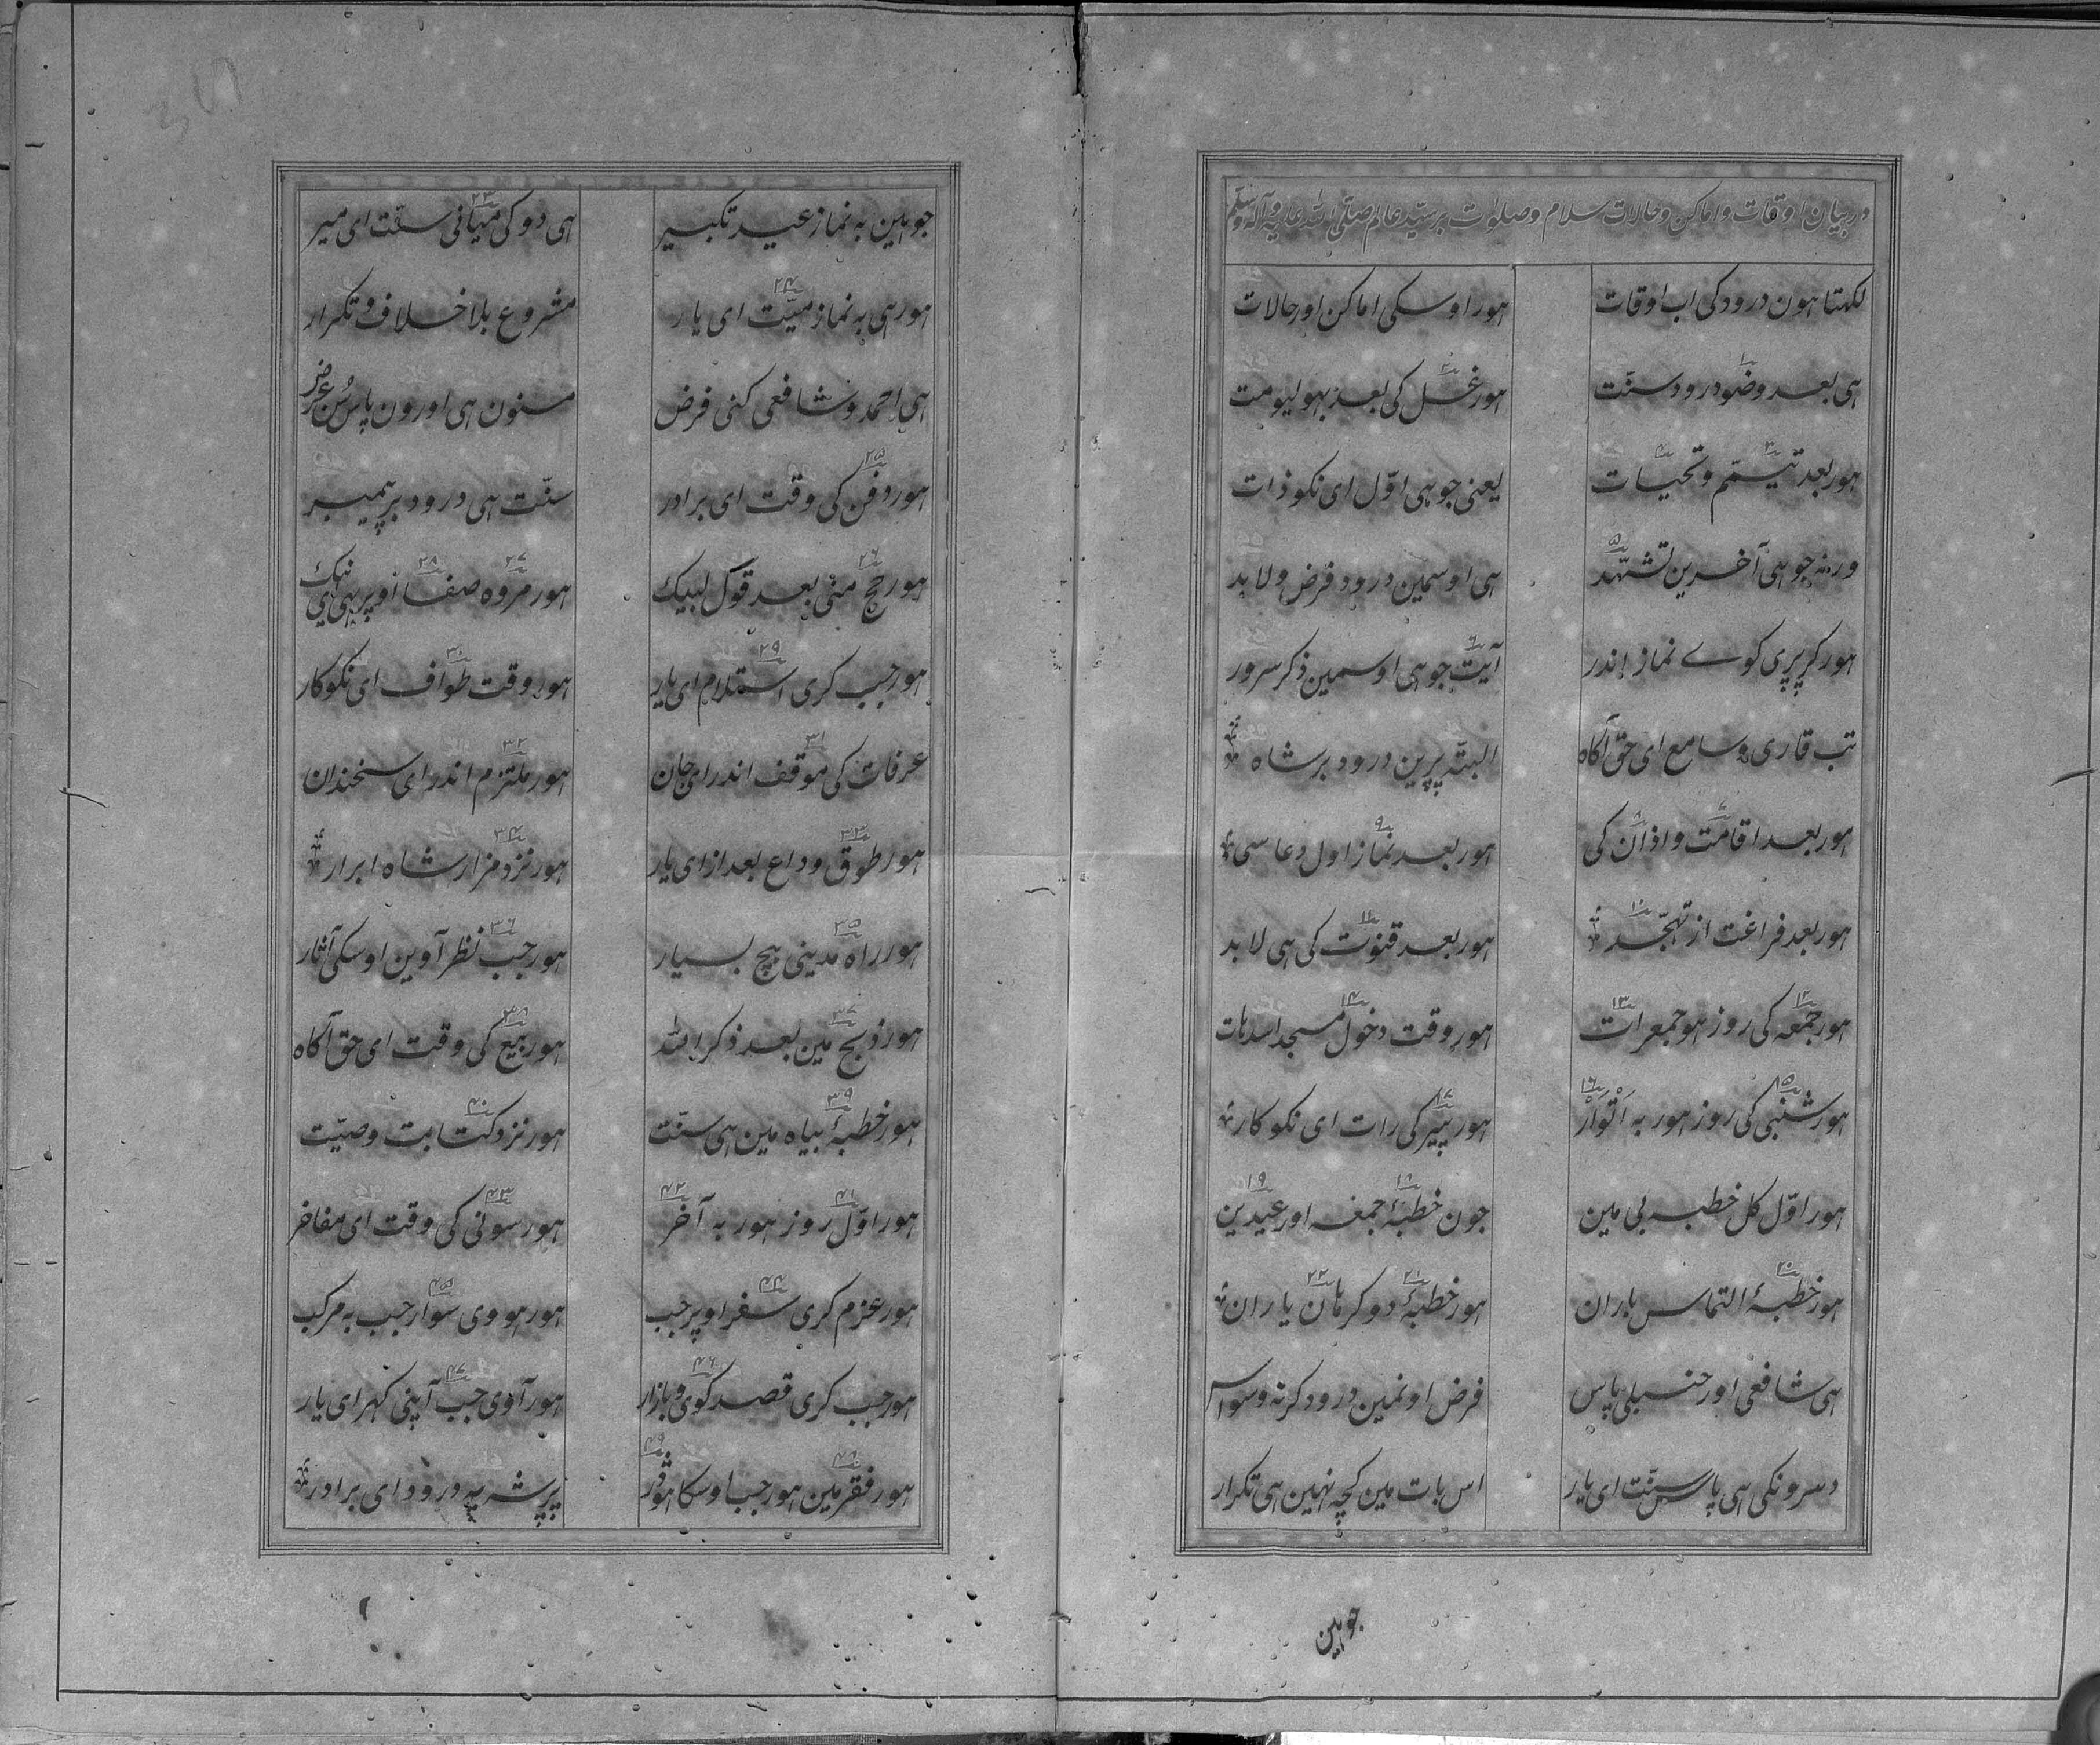 در بیان اوقات و اماکن و حالات سلام و صلوات بر سید عالم صلی الله علیه و آله وسلم
لکهتا هون درود کی اب اوقات هور اوسکی اماکن اور حالات
هی بعد وضو درود سنّت هور غسل کی بعد بهولیو مت
هور بعد تیمّم و تحیات یعنی جو هی اوّل ای نکو ذات
ورنه جو هی آخرین تشهّد هی اوسمین درود فرض و لابد
هور کر پری کوے نماز اندر آیت جو هی اوسمین ذکر سرور
تب قاری و سامع ای حق آکاه البتّه پرین درود بر شاه
هور بعد اقامت و اذان کی هور بعد نماز اول دعا سی
هور بعد فراغت از تهجّد هور بعد قنوت کی هی لابد
هور جمعه کی روز هو جمعرات هور وقت دخول مسجد
هور شنبی کی روز هور به اَتْوَارْ هور پیر کی رات ای نکو کار
هور اوّل کل خطبه بی مین جون خطبۂ جمعه اور عیدین
هور خطبۂ التماس باران هور خطبۂ دو کرهان یاران
هی شافعی اور حنبلی پاس فرض اونمین درود کر نه وسواس
دسرونکی هی پاس سنّت ای یار اس بات مین کچه نهین هی تکرار
جو هین
جو هین به نماز عید تکبیر هی دو کی میانی سنّت ای میر
هور هی به نماز میّت ای یار مشروع بلا خلاف و تکرار
هی احمد و شافعی کنی فرض مسنون هی اورون پاس سُن عرض
هور دفن کی وقت ای برادر سنّت هی درود بر پیمبر
هور حج منی بعد قول لبیک هور مروه صفا اوپر بهی ای نیک
هور جب کری استلام ای یار هور وقت طواف ای نکو کار
عرفات کی موقف اندر ای جان هور ملتزم اندر ای سخندان
هور طوف وداع بعد از ای یار هور نزد مزار شاه ابرار
هور راه مدینی بیچ بسیار هور جب نظر آوین اوسکی آثار
هور ذبح مین بعد ذکر الله هور بیع کی وقت ای حق آکاه
هور خطبۂ بیاه مین هی سنّت هور نزد کتابت وصیّت
هور اوّل روز هور به آخر هور سونی کی وقت ای مفاخر
هور عزم کری سفر اوپر جب هور هووی سوار جب به مرکب
هور جب کری قصد کوی و بازار هور آوی جب آپنی کهر ای یار
هور فقر مین هور جب اوسکا هو دَر درود ای برادر